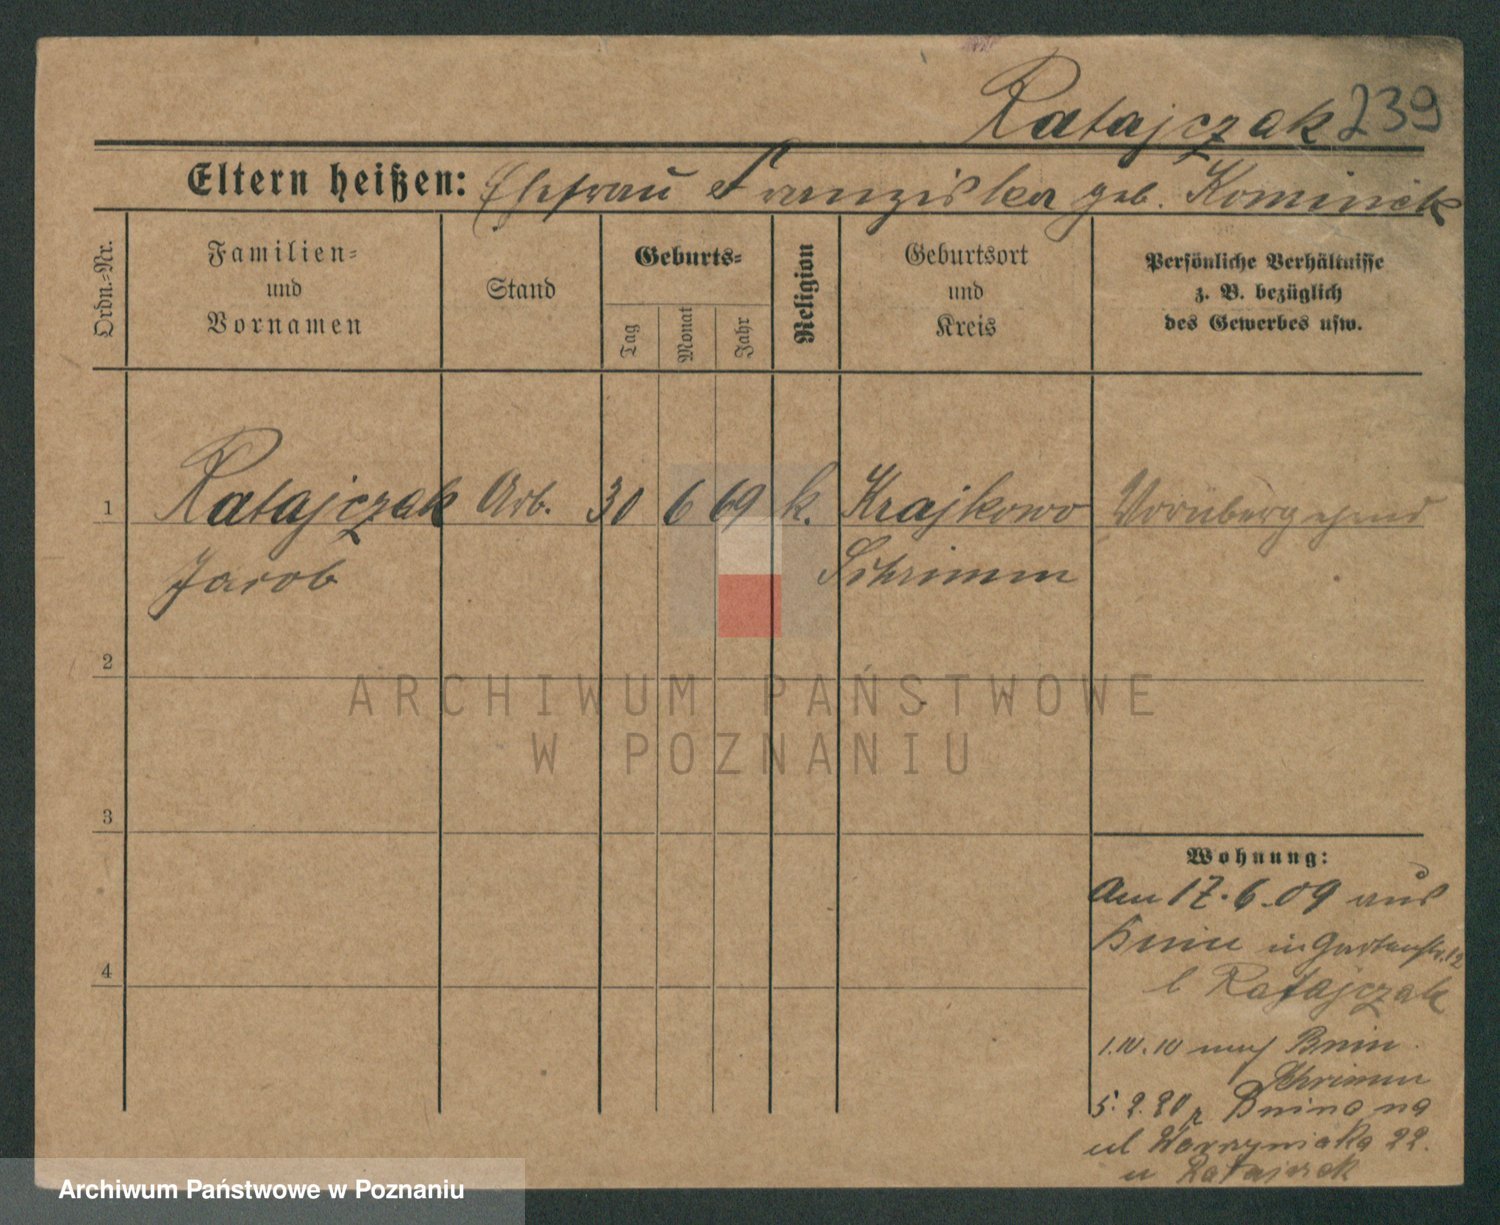 Ratajczak 239
Eltern heißen: Ehefrau Franziska geb. Kominick
Ordn.=Nr.
Familien=
und
Vornamen
Stand
Geburts=
Tag
Monat
Jahr
Religion
Geburtsort
und
Kreis
Persönliche Verhältnisse
z. B. bezüglich
des Gewerbes usw.
1 Ratajczak Arb. 30 6 69 k. Krajkowo Vorübergehend
Jacob Schrimm
2
3
4
Wohnung:
Am 17.6.09 aus
Bnin in Gartenstr. 12
b Ratajczak
1.10.10 nach Bnin
Schrimm
5.2.20 z Bnina na
ul Wawrzyniaka 22.
u Ratajczak
ARCHIWUM PAŃSTWOWE
W POZNANIU
Archiwum Państwowe w Poznaniu